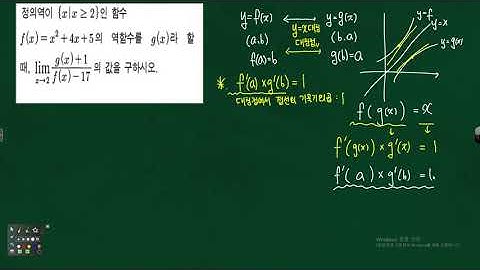 정의역이 {x|x ≥ 2}인 함수
f(x) = x² + 4x + 5의 역함수를 g(x)라 할
때, lim x→2 g(x)+1 / f(x)-17 의 값을 구하시오.
y=f(x) ↔ y=g(x)
y=x대칭
(a,b) 대칭점 (b,a)
f(a)=b g(b)=a
* f'(a) × g'(b) = 1
대칭점에서 접선의 기울기의곱 : 1
y=f
y=x
y=g(x)
f( g(x) ) = x
f'(g(x)) × g'(x) = 1
f'( a ) × g'(b) = 1.
Windows 정품 인증